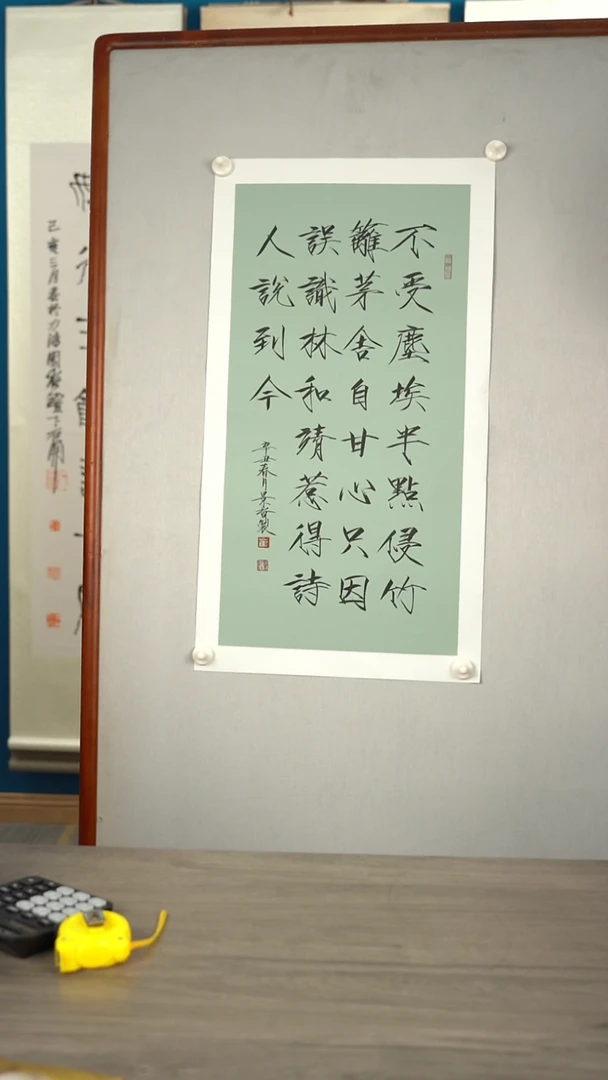 不受塵埃半點侵竹
籬茅舍自甘心只因
誤識林和靖惹得詩
人說到今
辛丑春月吴
己亥三月